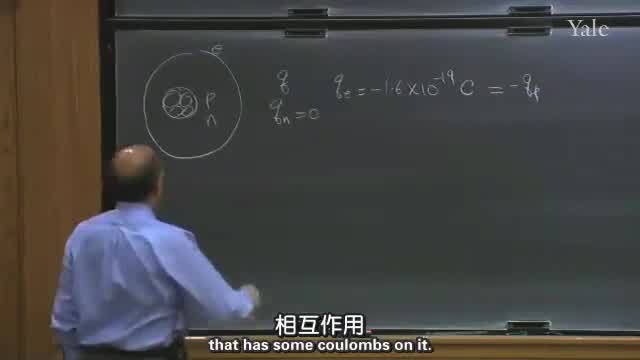 Yale
e
p
n
q
q_n = 0
q_e = -1.6 × 10^-19 C = -q_p
相互作用
that has some coulombs on it.